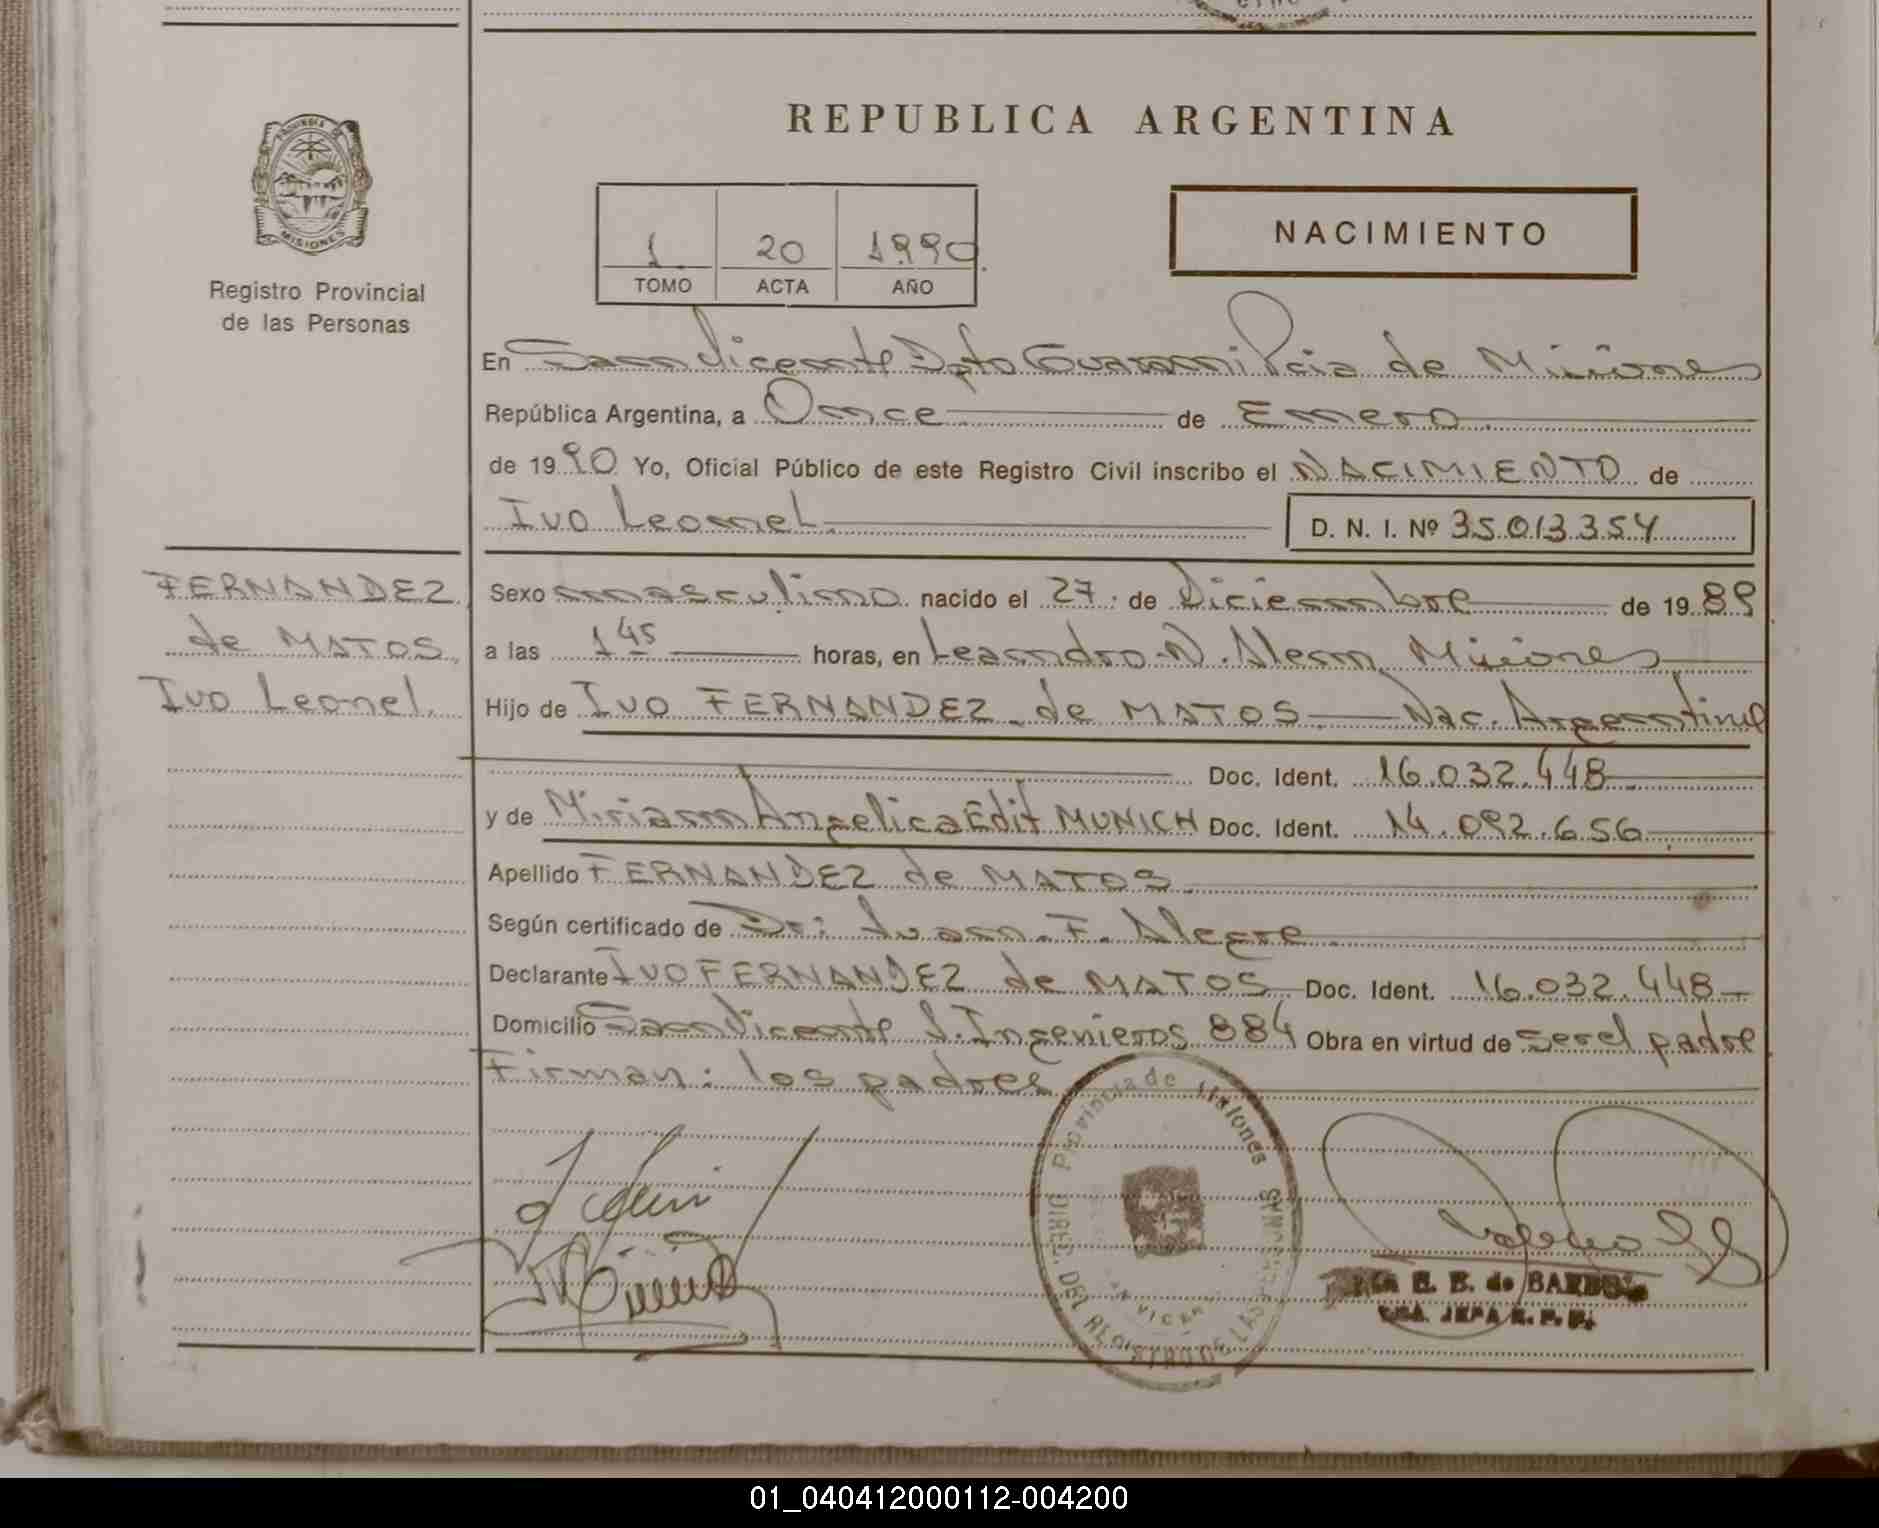 PROVINCIA DE
MISIONES
Registro Provincial
de las Personas
REPUBLICA ARGENTINA
1 20 1990
TOMO ACTA AÑO
NACIMIENTO
En San Vicente Dpto Guarani Pcia de Misiones
República Argentina, a Once de Enero
de 1990 Yo, Oficial Público de este Registro Civil inscribo el NACIMIENTO de
Ivo Leonel.
D. N. I. Nº 35.013.354
FERNANDEZ
de MATOS
Ivo Leonel.
Sexo masculino nacido el 27 de Diciembre de 1989
a las 1 45 horas, en Leandro N. Alem Misiones
Hijo de Ivo FERNANDEZ de MATOS Nac. Argentina
Doc. Ident. 16.032.448
y de Miriam Angelica Edit MUNICH Doc. Ident. 14.092.656
Apellido FERNANDEZ de MATOS
Según certificado de Dr: Juan F. Alegre
Declarante IVO FERNANDEZ de MATOS Doc. Ident. 16.032.448
Domicilio San Vicente J. Ingenieros 884 Obra en virtud de Ser el padre
Firman: los padres
Provincia de Misiones
DIREC. DEL REGISTRO DE LAS
E. B. de
JEFA R. P. P.
01_040412000112-004200